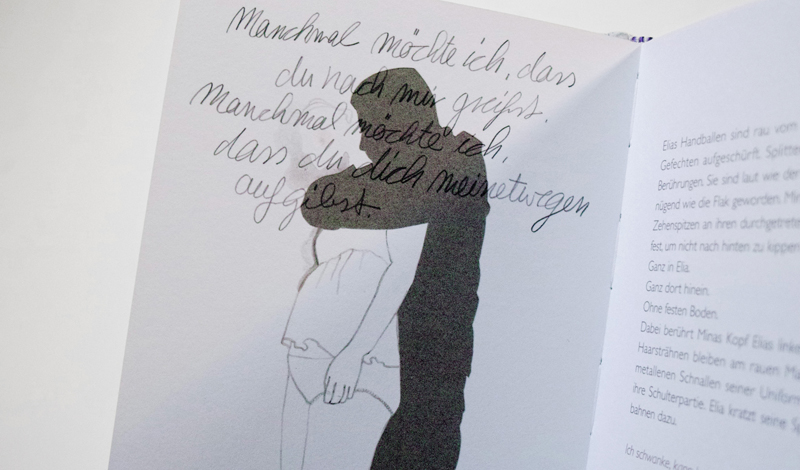 Manchmal möchte ich, dass
du nach mir greifst.
Manchmal möchte ich,
dass du dich meinetwegen
aufgibst.
Elias Handballen sind rau vom
Gefechten aufgeschürft. Splitte
Berührungen. Sie sind laut wie der
nügend wie die Flak geworden. Mi
Zehenspitzen an ihren durchgetrete
fest, um nicht nach hinten zu kippen
Ganz in Elia.
Ganz dort hinein.
Ohne festen Boden.
Dabei berührt Minas Kopf Elias links
Haarsträhnen bleiben am rauen
metallenen Schnallen seiner Uniform
ihre Schulterpartie. Elia kratzt seine
bahnen dazu.
Ich schwanke,